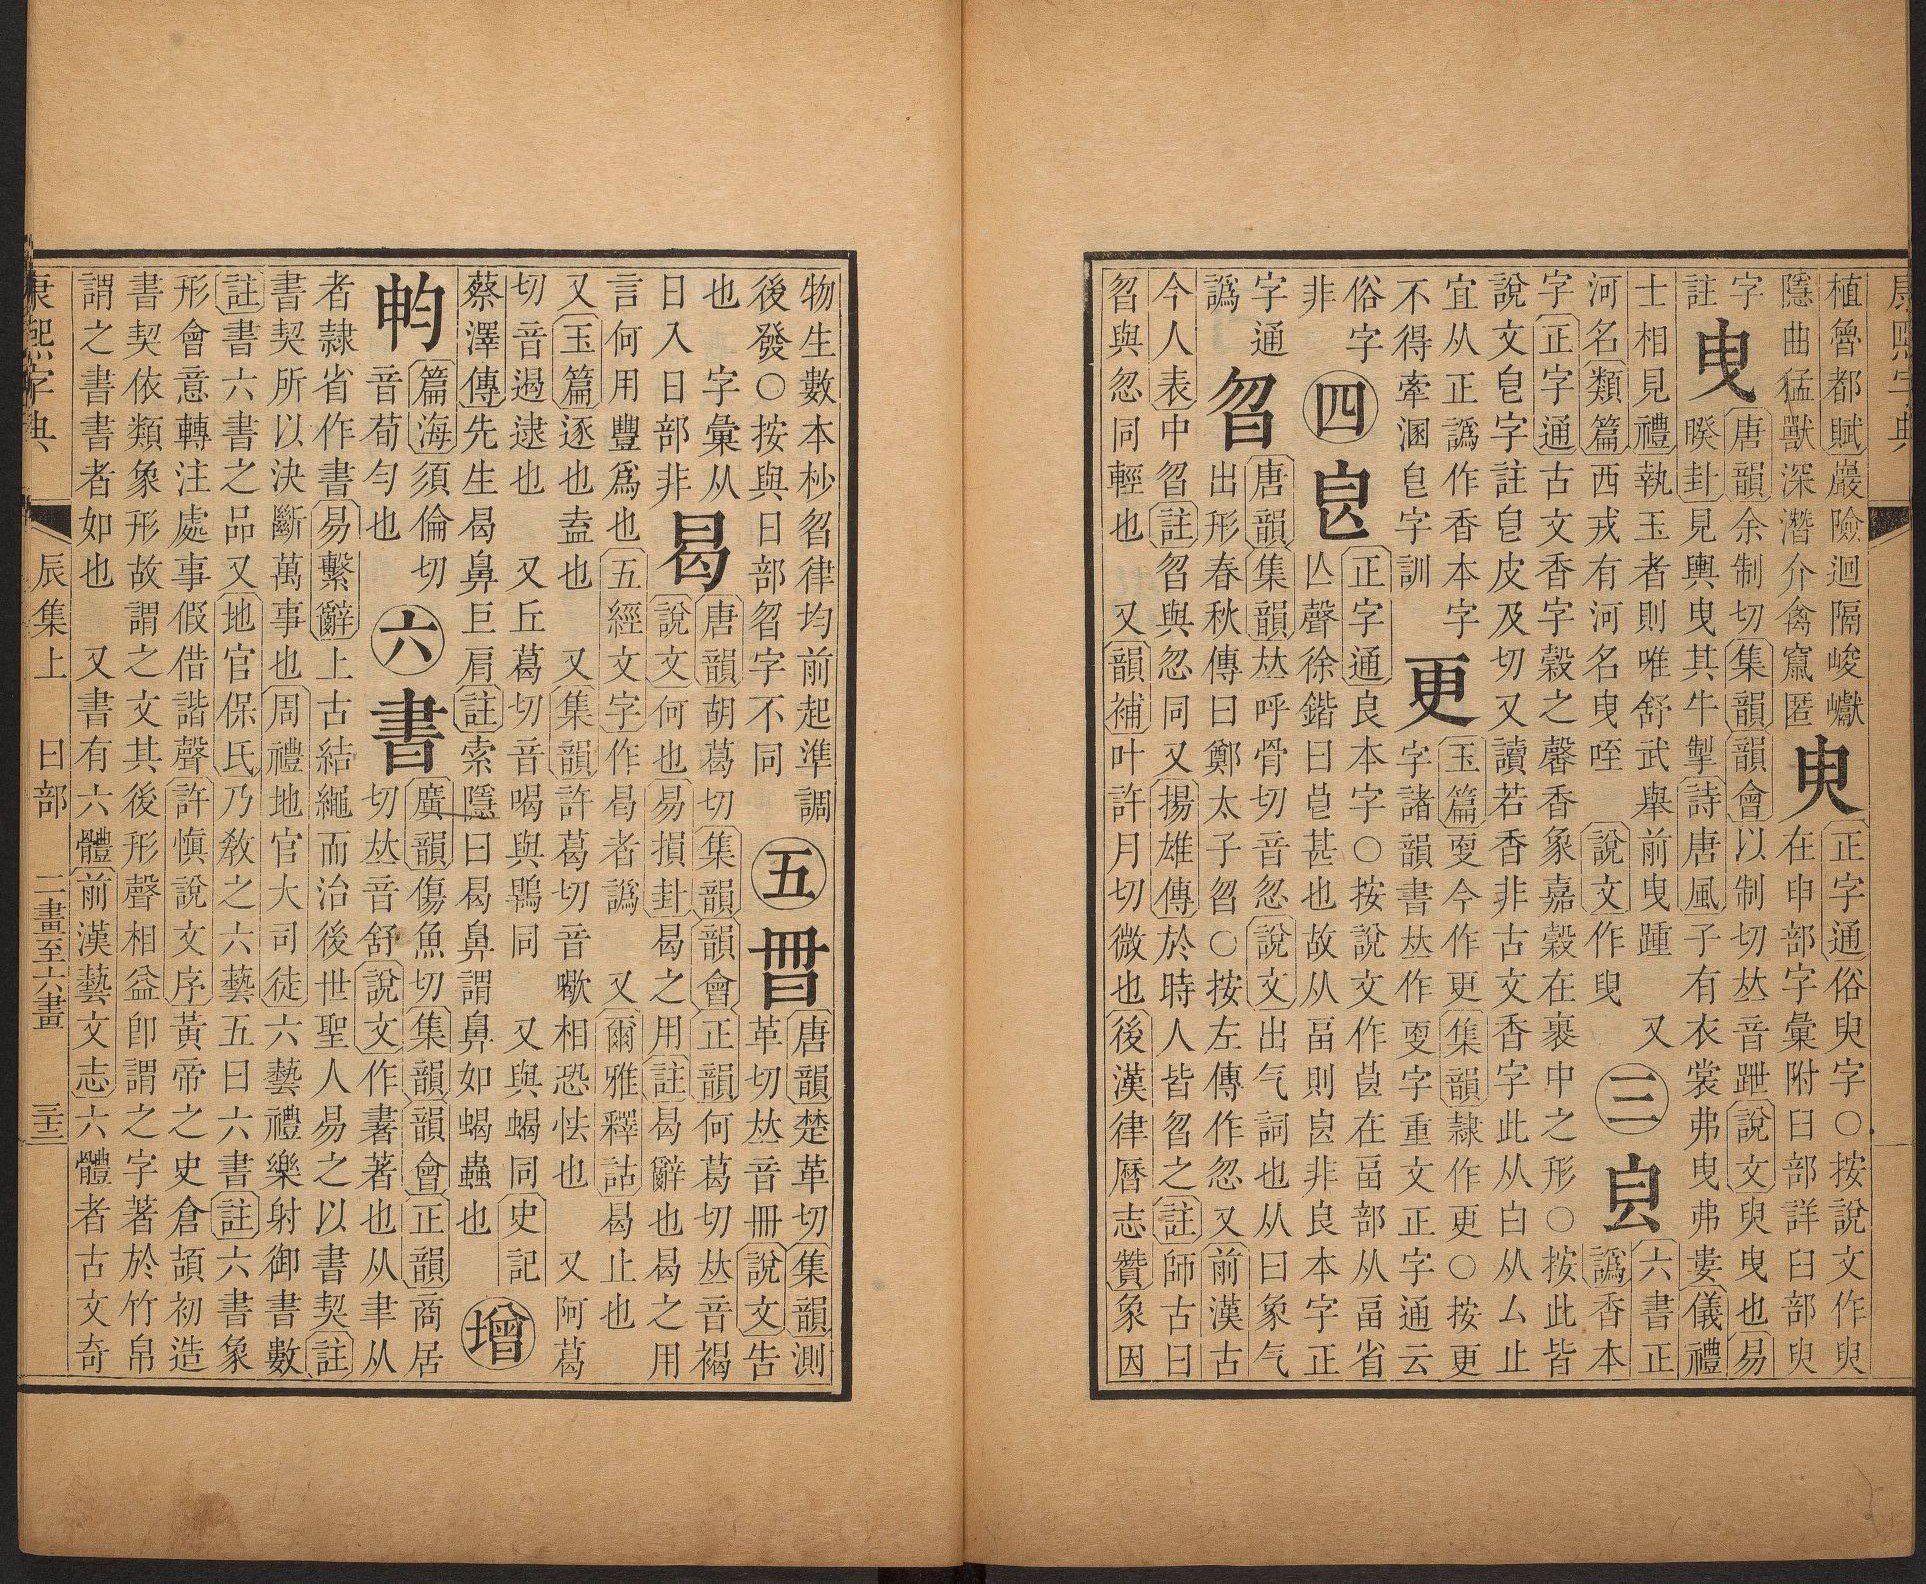 植魯都賦巖險迴隔峻巘臾正字通俗臾字○按說文作臾
隱曲猛獸深潛介禽窟匿在申部字彙附臼部詳臼部臾
字曳唐韻余制切集韻韻會以制切𠀤音跇說文臾曳也易
註睽卦見輿曳其牛掣詩唐風子有衣裳弗曳弗婁儀禮
士相見禮執玉者則唯舒武舉前曳踵 又三六書正
河名類篇西戎有河名曳咥 說文作 譌香本
字正字通古文香字榖之馨香象嘉榖在裹中之形○按此皆
說文皀字註皀皮及切又讀若香非古文香字此从白从厶止
宜从正譌作香本字更玉篇㪅今作更集韻隸作更○按更
不得牽溷皀字訓字諸韻書𠀤作㪅字重文正字通云
俗字四㫐正字通良本字○按說文作在畗部从畗省
非亾聲徐鍇曰皀甚也故从畗則㫐非良本字正
字通曶唐韻集韻𠀤呼骨切音忽說文出气詞也从曰象气
譌出形春秋傳曰鄭太子曶○按左傳作忽又前漢古
今人表中曶註曶與忽同又揚雄傳於時人皆曶之註師古曰
曶與忽同輕也 又韻補叶許月切微也後漢律曆志贊象因
物生數本杪曶律均前起準調五唐韻楚革切集韻測
後發○按與日部曶字不同革切𠀤音冊說文告
也 字彙从曷唐韻胡葛切集韻韻會正韻何葛切𠀤音褐
日入日部非說文何也易損卦曷之用註曷辭也曷之用
言何用豐爲也五經文字作曷者譌 又爾雅釋詁曷止也
又玉篇逐也盍也 又集韻許葛切音歇相恐怯也 又阿葛
切音遏逮也 又丘葛切音喝與鶡同 又與蝎同史記
蔡澤傳先生曷鼻巨肩註索隱曰曷鼻謂鼻如蝎蟲也增
篇海須倫切六書廣韻傷魚切集韻韻會正韻商居
音荀勻也切𠀤音舒說文作書著也从聿从
者隸省作書易繫辭上古結繩而治後世聖人易之以書契註
書契所以決斷萬事也周禮地官大司徒六藝禮樂射御書數
註書六書之品又地官保氏乃敎之六藝五曰六書註六書象
形會意轉注處事假借諧聲許愼說文序黃帝之史倉頡初造
書契依類象形故謂之文其後形聲相益卽謂之字著於竹帛
謂之書書者如也 又書有六體前漢藝文志六體者古文奇
康熙字典 辰集上 曰部 二畫至六畫